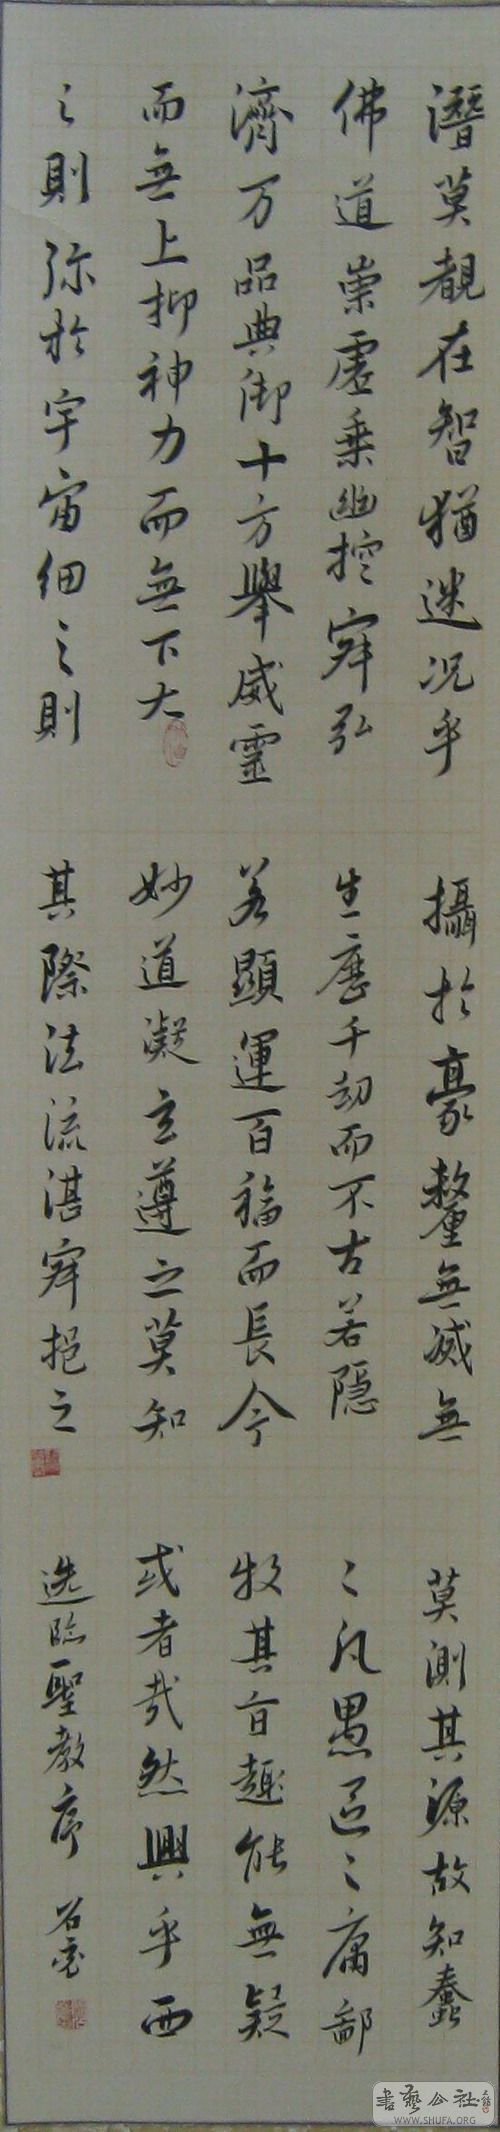 潛莫覩在智猶迷況乎
佛道崇虛乘幽控寂弘
濟万品典御十方舉威靈
而無上抑神力而無下大
之則弥於宇宙細之則
攝於豪釐無滅無
生歷千劫而不古若隱
若顯運百福而長今
妙道凝玄遵之莫知
其際法流湛寂挹之
莫測其源故知蠢
〻凡愚區〻庸鄙
投其旨趣能無疑
或者哉然興乎西
选临聖教序
書藝公社
WWW.SHUFA.ORG